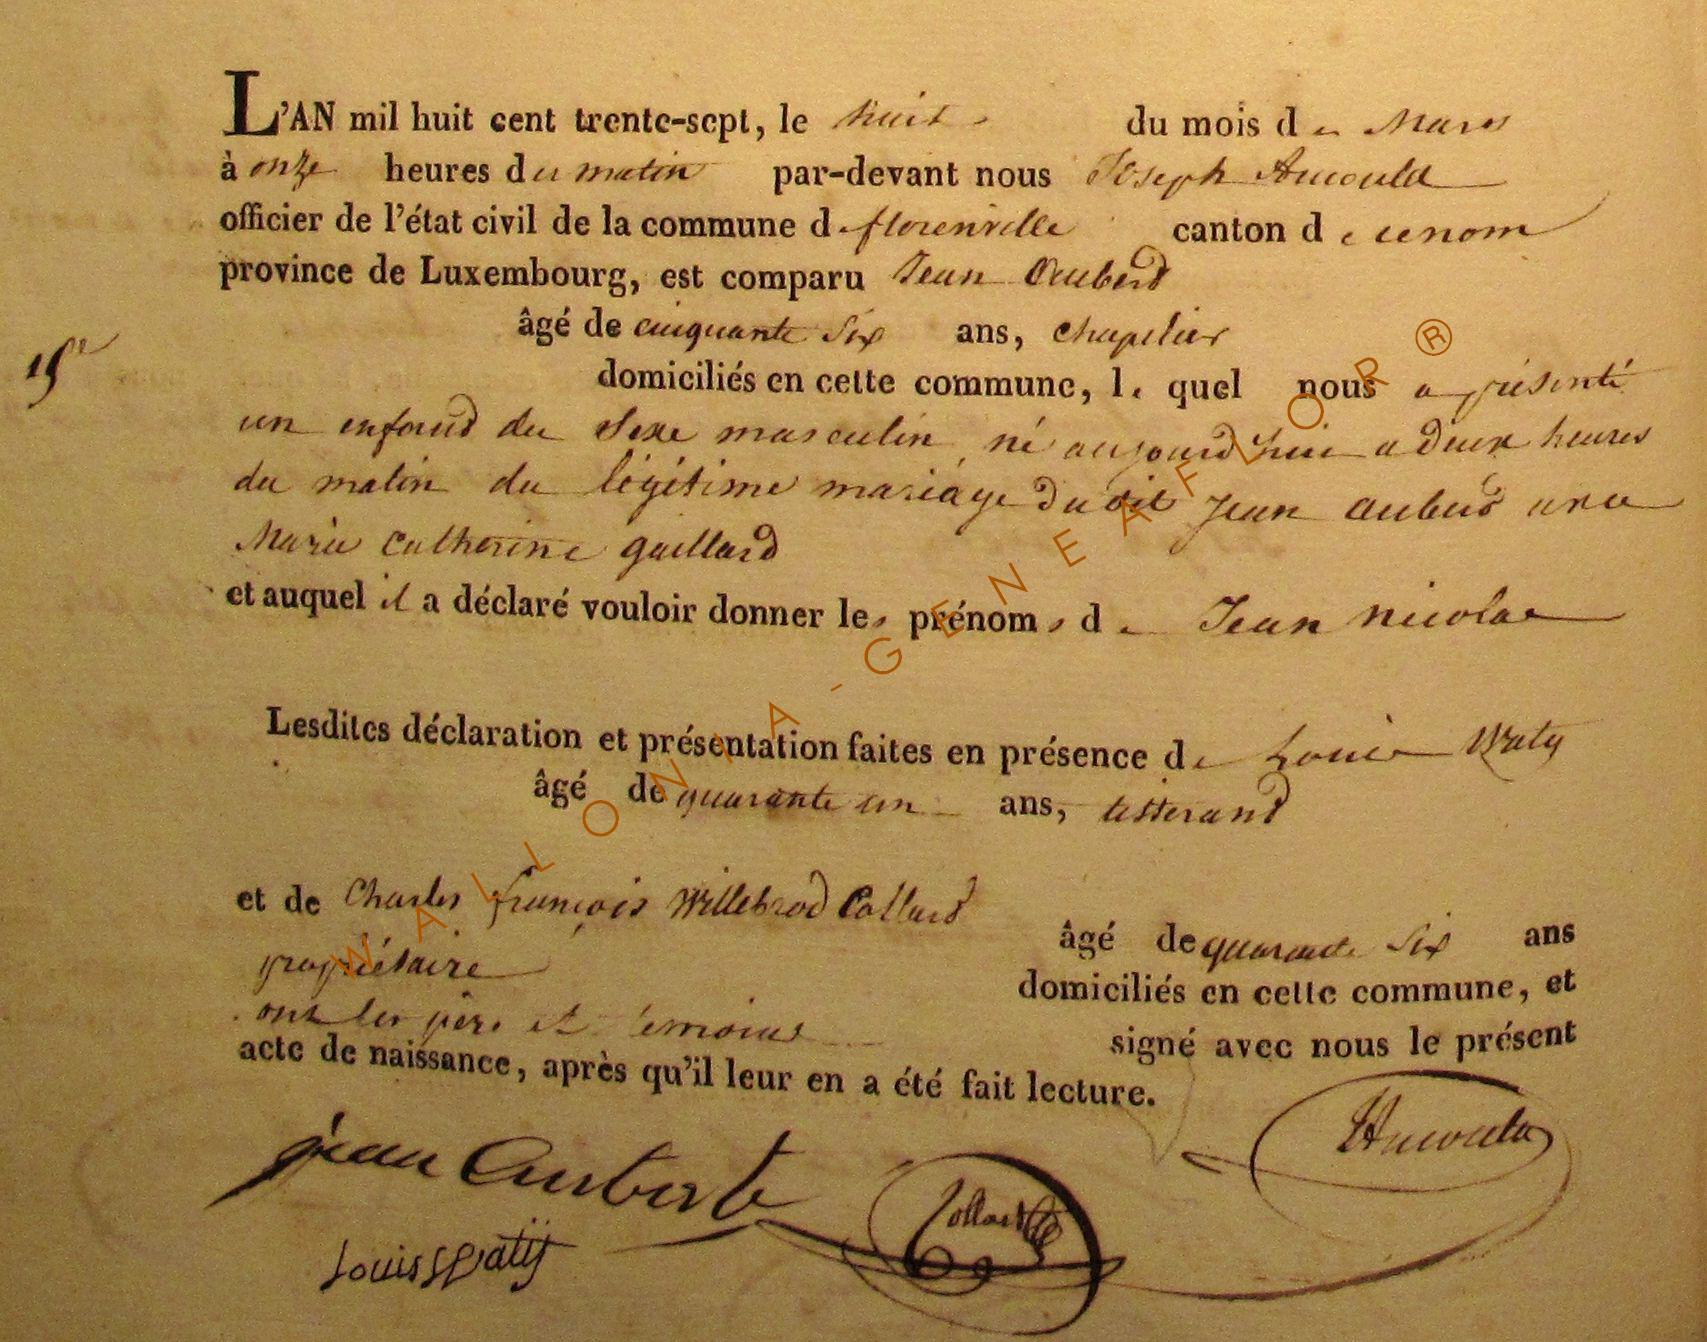 L'AN mil huit cent trente-sept, le huit du mois de Mars
à onze heures du matin par-devant nous Joseph Arnould
officier de l'état civil de la commune de florenville canton de ce nom
province de Luxembourg, est comparu Jean Auberd
âgé de cinquante Six ans, chapelier
15e
domiciliés en cette commune, le quel nous a présenté
un enfand du Sexe masculin né aujourd'hui a deux heures
du matin du légitime mariage dudit Jean auberd avec
Marie catherine gaillard
et auquel il a déclaré vouloir donner les prénoms de Jean nicolas
Lesdites déclaration et présentation faites en présence de Louis Waty
âgé de quarante un ans, tisserand
et de Charles françois Willebrod Collard
âgé de quarante Six ans
propriétaire
domiciliés en cette commune, et
ont les père et temoins signé avec nous le présent
acte de naissance, après qu'il leur en a été fait lecture.
JArnould
jean Auberte
Collard
Louis Watij
WALLONIA-GENEAFLOR®